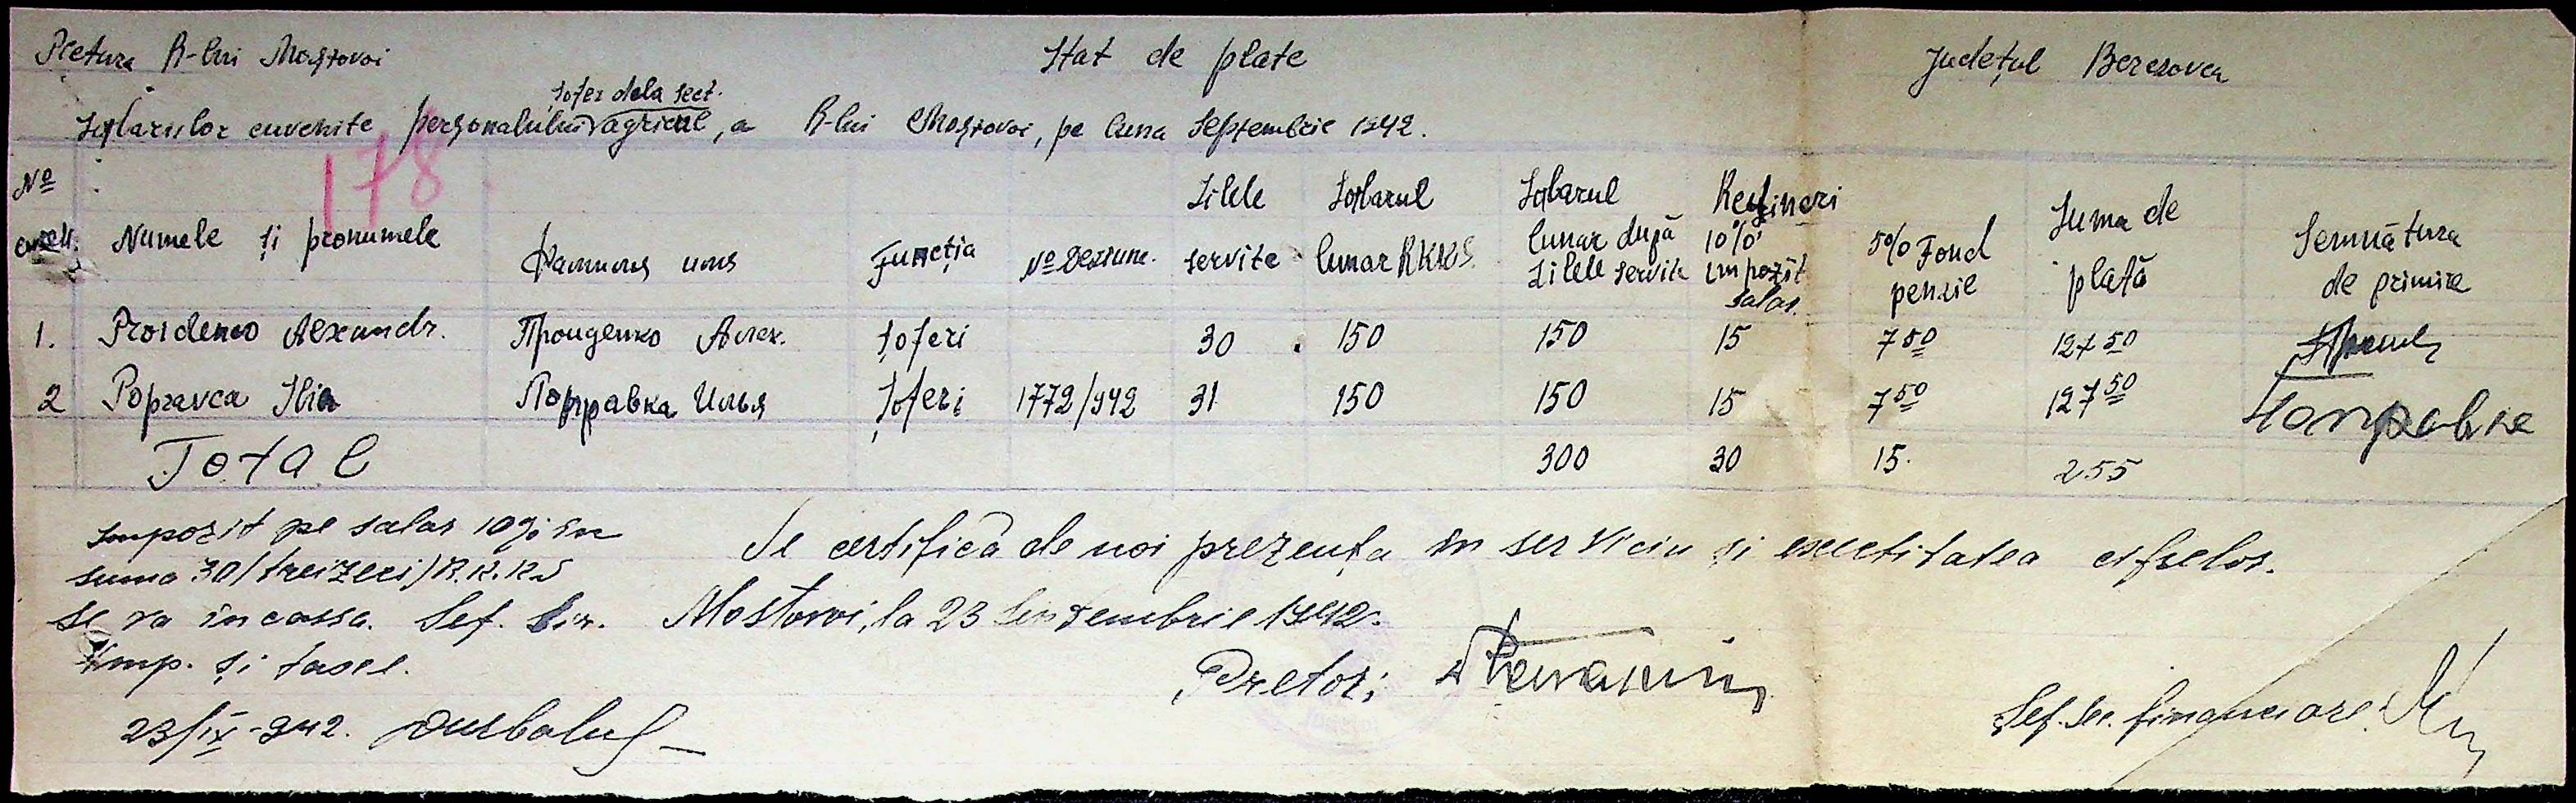 Pretura R-lui Mostovoi
Stat de plate
Județul Berezovca
șofer dela sect.
Salariilor cuvenite personalului agricol, a R-lui Mostovoi, pe luna Septembrie 1942.
178
No curent. Numele și pronumele Фамилия имя Funcția No Deziune. Zilele servite Salarul lunar RKKS. Salarul lunar după zilele servite Rețineri 10% impozit salar. 5% Fond penzie Suma de plată Semnătura de primire
1. Proidenco Alexandr. Проиденко Алек. șoferi 30 150 150 15 7 50 127 50
2 Popravca Ilia Поправка Илья șoferi 1772/942 31 150 150 15 7 50 127 50 Поправка
Total 300 30 15. 255
Impozit pe salar 10% în
suma 30/treizeci/R.K.K.S
se va încassa. Șef. bir.
Imp. și taxe.
23/IX-942.
Se certifică de noi prezența în serviciu și exactitatea cifrelor.
Mostovoi, la 23 Septembrie 1942.
Pretor;
Șef. Sec. financiare.